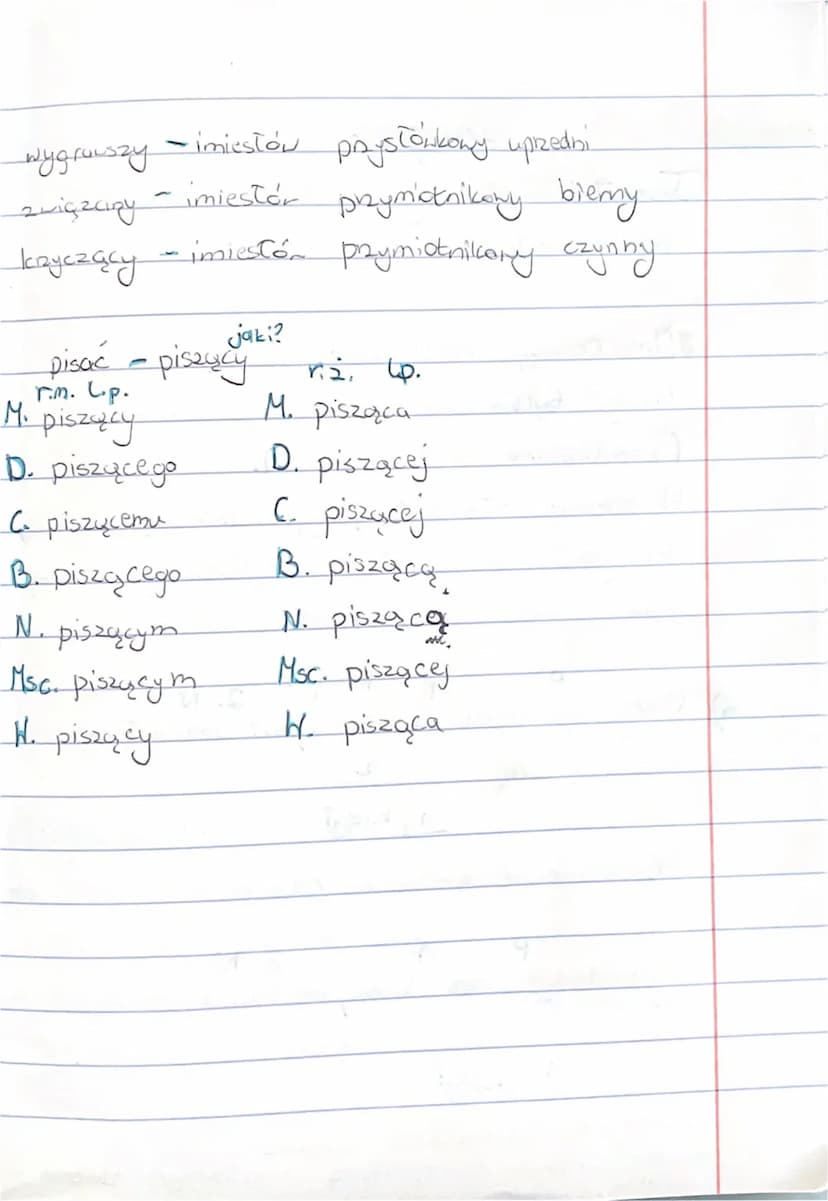 wygrawszy - imiesłów przysłówkowy uprzedni
związany - imiesłów przymiotnikowy bierny
krzyczący - imiesłów przymiotnikowy czynny
jaki?
pisać - piszący
r.m. l.p.
M. piszący
D. piszącego
C. piszącemu
B. piszącego
N. piszącym
Msc. piszącym
W. piszący
r.ż. lp.
M. pisząca
D. piszącej
C. piszącej
B. piszącą
N. piszącą
Msc. piszącej
W. pisząca